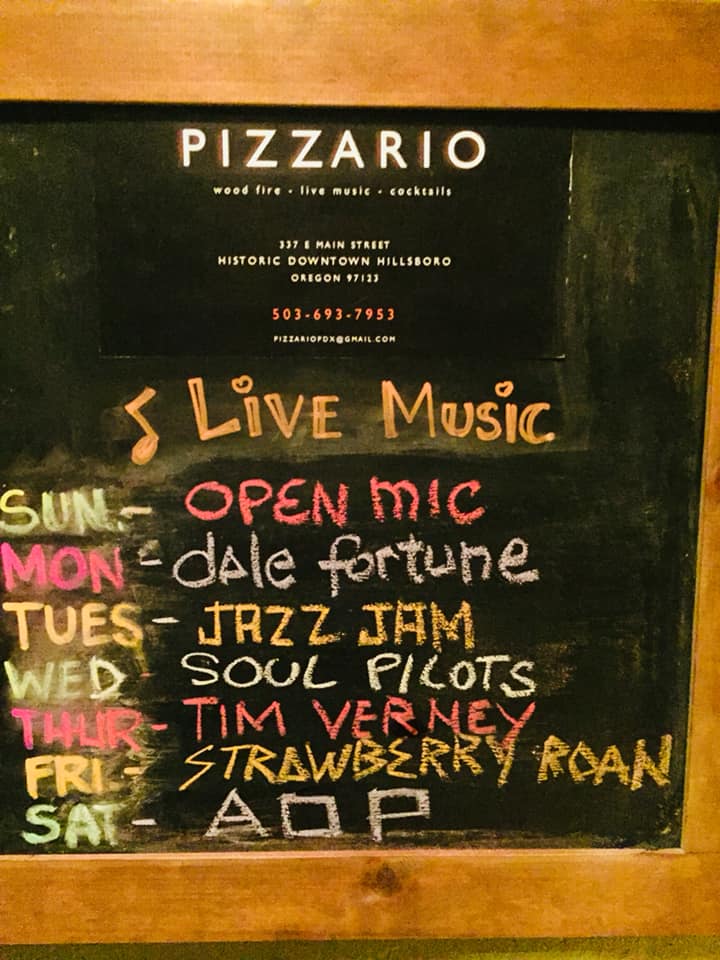 PIZZARIO
wood fire - live music - cocktails
337 E MAIN STREET
HISTORIC DOWNTOWN HILLSBORO
OREGON 97123
503-693-7953
PIZZARIOPDX@GMAIL.COM
♪ LiVE MUSiC
SUN. - OPEN MIC
MON - dale fortune
TUES - JAZZ JAM
WED - SOUL PILOTS
THUR - TIM VERNEY
FRI. - STRAWBERRY ROAN
SAT - AOP